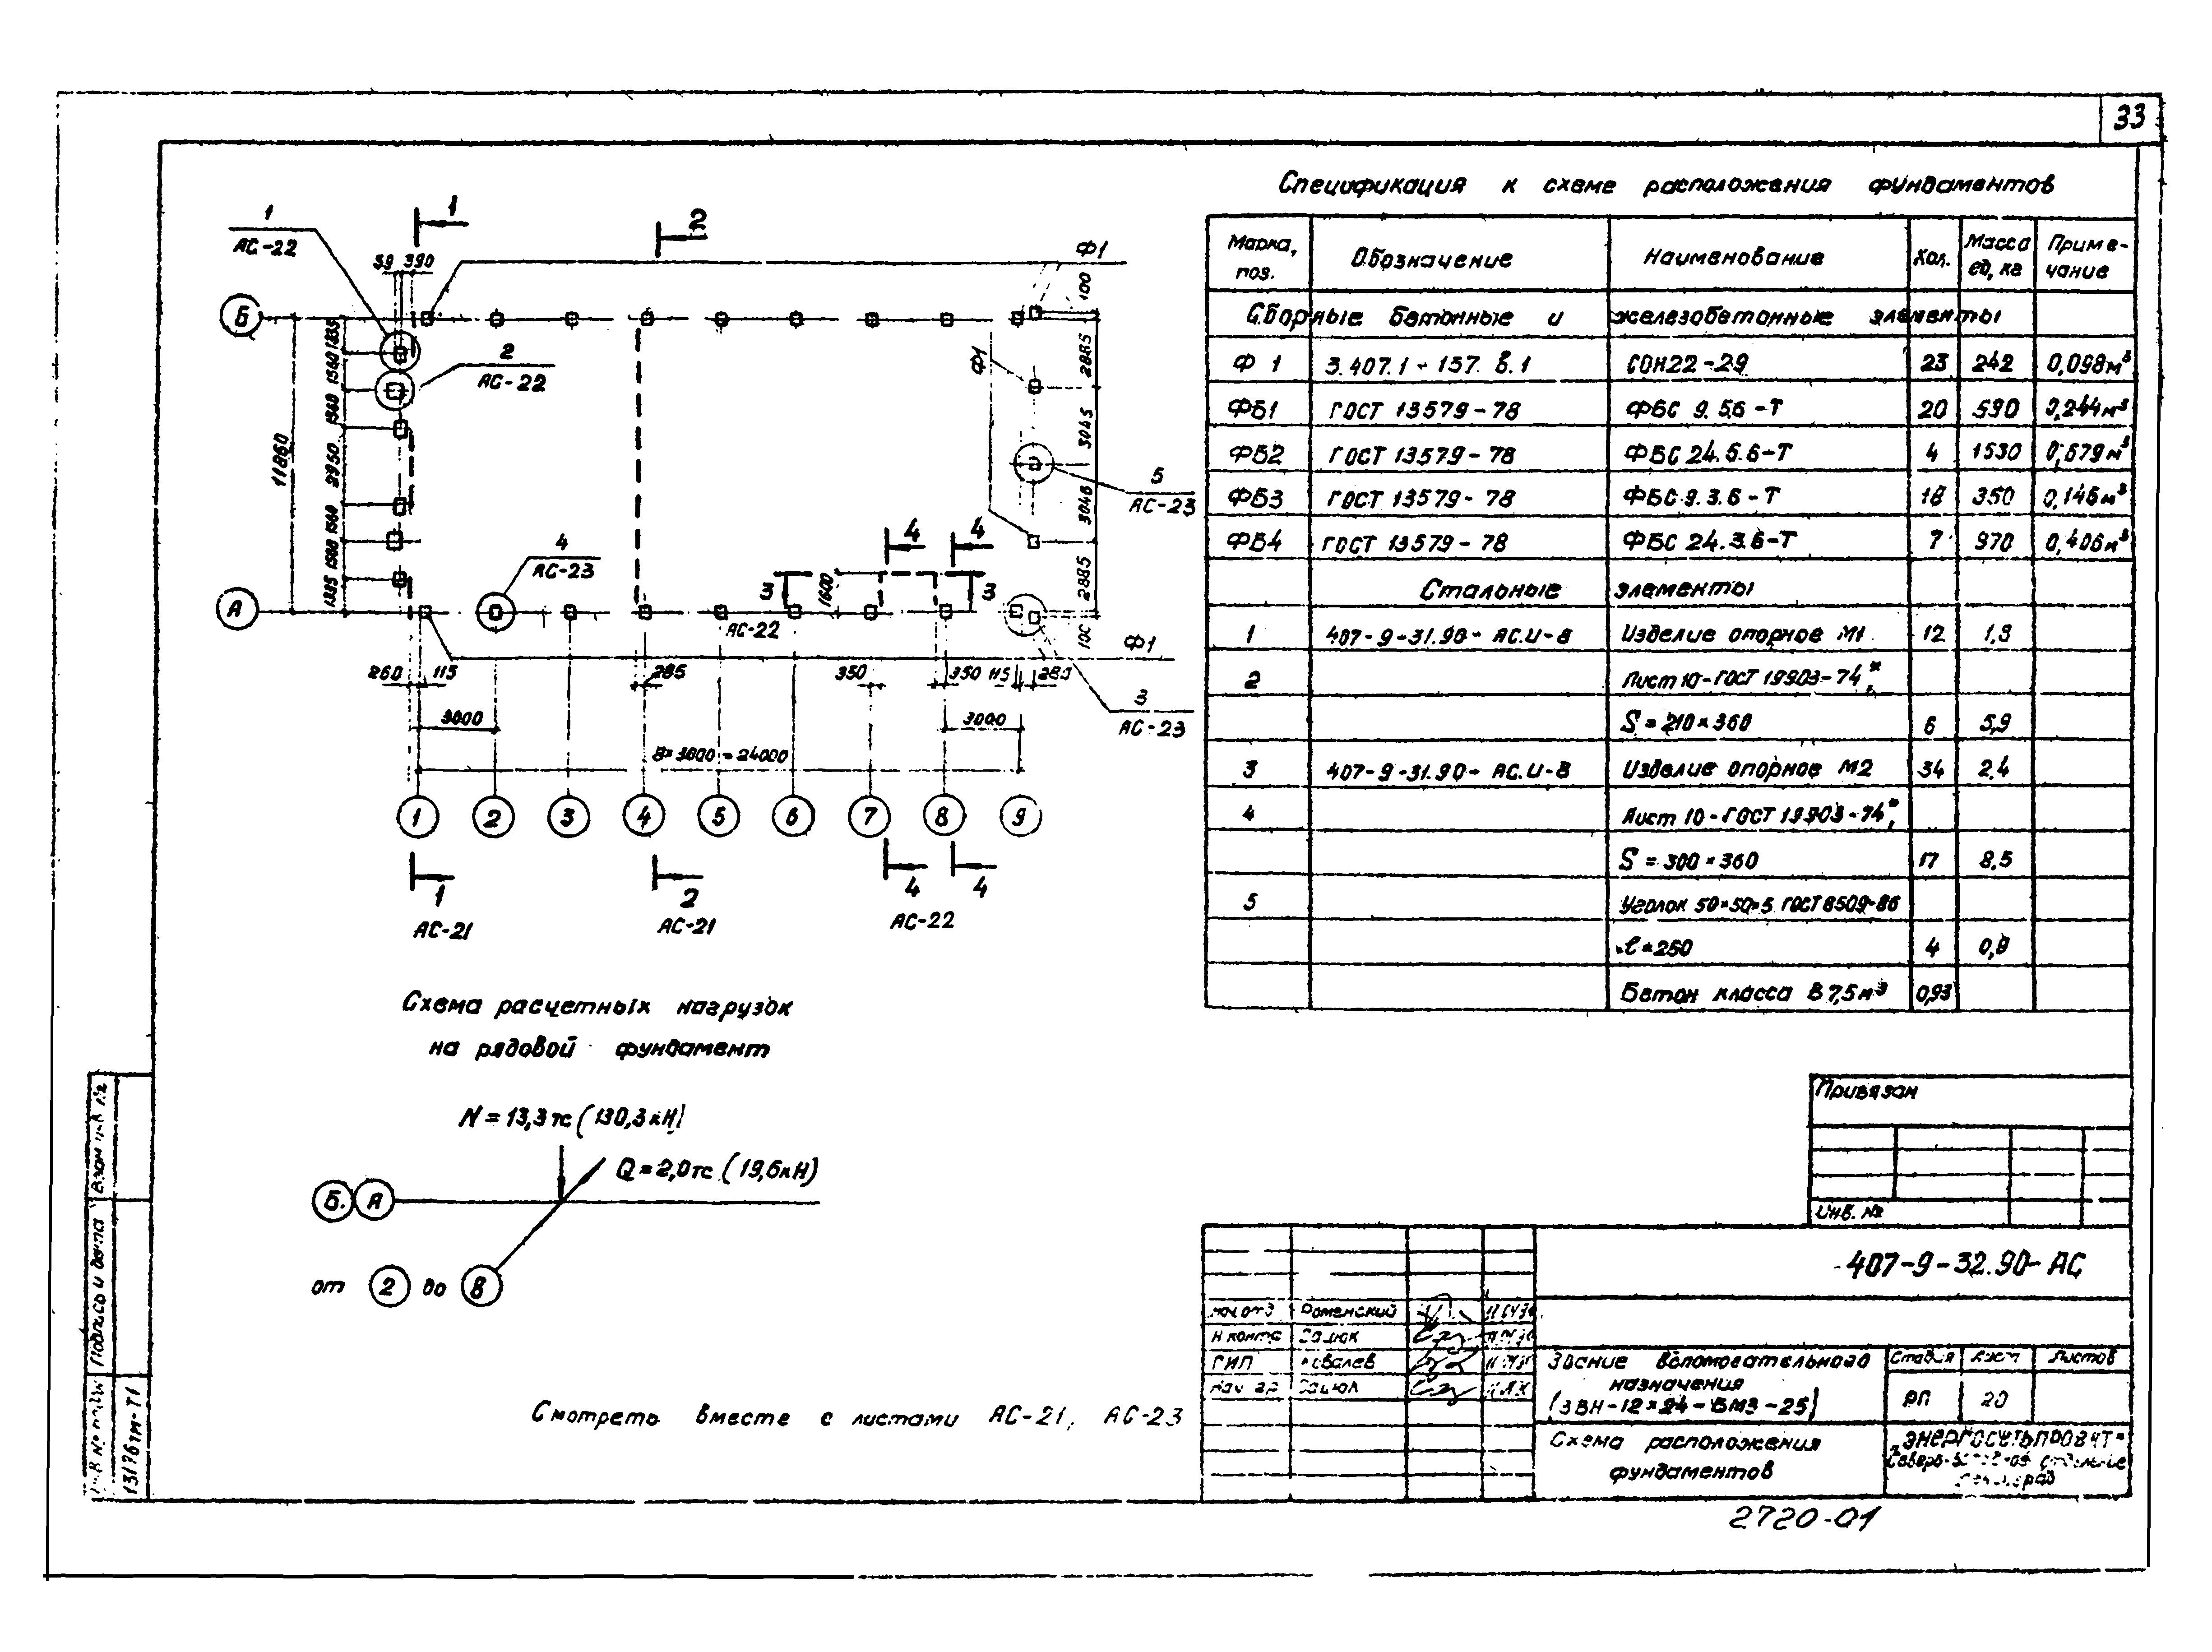 33
Спецификация к схеме расположения фундаментов
Марка, поз. Обозначение Наименование Кол. Масса ед, кг Примечание
Сборные бетонные и железобетонные элементы
Ф 1 3.407.1-157. в.1 СОН22-29 23 242 0,098м³
ФБ1 ГОСТ 13579-78 ФБС 9.5.6-Т 20 590 0,244м³
ФБ2 ГОСТ 13579-78 ФБС 24.5.6-Т 4 1530 0,679м³
ФБ3 ГОСТ 13579-78 ФБС.9.3.6-Т 18 350 0,146м³
ФБ4 ГОСТ 13579-78 ФБС 24.3.6-Т 7 970 0,406м³
Стальные элементы
1 407-9-31.90-АС.И-8 Изделие опорное М1 12 1,9
2 Лист 10-ГОСТ 19903-74*,
S=210×360 6 5,9
3 407-9-31.90-АС.И-8 Изделие опорное М2 34 2,4
4 Лист 10-ГОСТ 19903-74*,
S=300×360 17 8,5
5 Уголок 50×50×5 ГОСТ 8509-86
ℓ=250 4 0,9
Бетон класса В 7,5 м³ 0,93
1
АС-22
59 390
1
2
Ф1
100
Б
2
АС-22
1335 1560 1540 2950 1560 1560 1335
11860
Ф1
2885
3045
3046
2885
100
5
АС-23
4
АС-23
4 4
3 3
1600
А
АС-22
Ф1
260 115 285 350 350 115 280
3
АС-23
3000 3000
8×3000=24000
1 2 3 4 5 6 7 8 9
1 2 4 4
АС-21 АС-21 АС-22
Схема расчетных нагрузок
на рядовой фундамент
N=13,3тс (130,3кН)
Q=2,0тс (19,6кН)
Б. А
от 2 до 8
Смотреть вместе с листами АС-21, АС-23
Привязан
Инв. №
407-9-32.90-АС
Нач отд Роменский
Н контр Зацюк
ГИП Ковалев
Нач гр Зацюк
Здание вспомогательного
назначения
(ЗВН-12×24-ВМЗ-25)
Стадия Лист Листов
РП 20
Схема расположения
фундаментов
„ЭНЕРГОСЕТЬПРОЕКТ"
Северо-Западное отделение
Ленинград
2720-01
Взам инв №
Подпись и дата
Инв № подл
13176тм-Т1